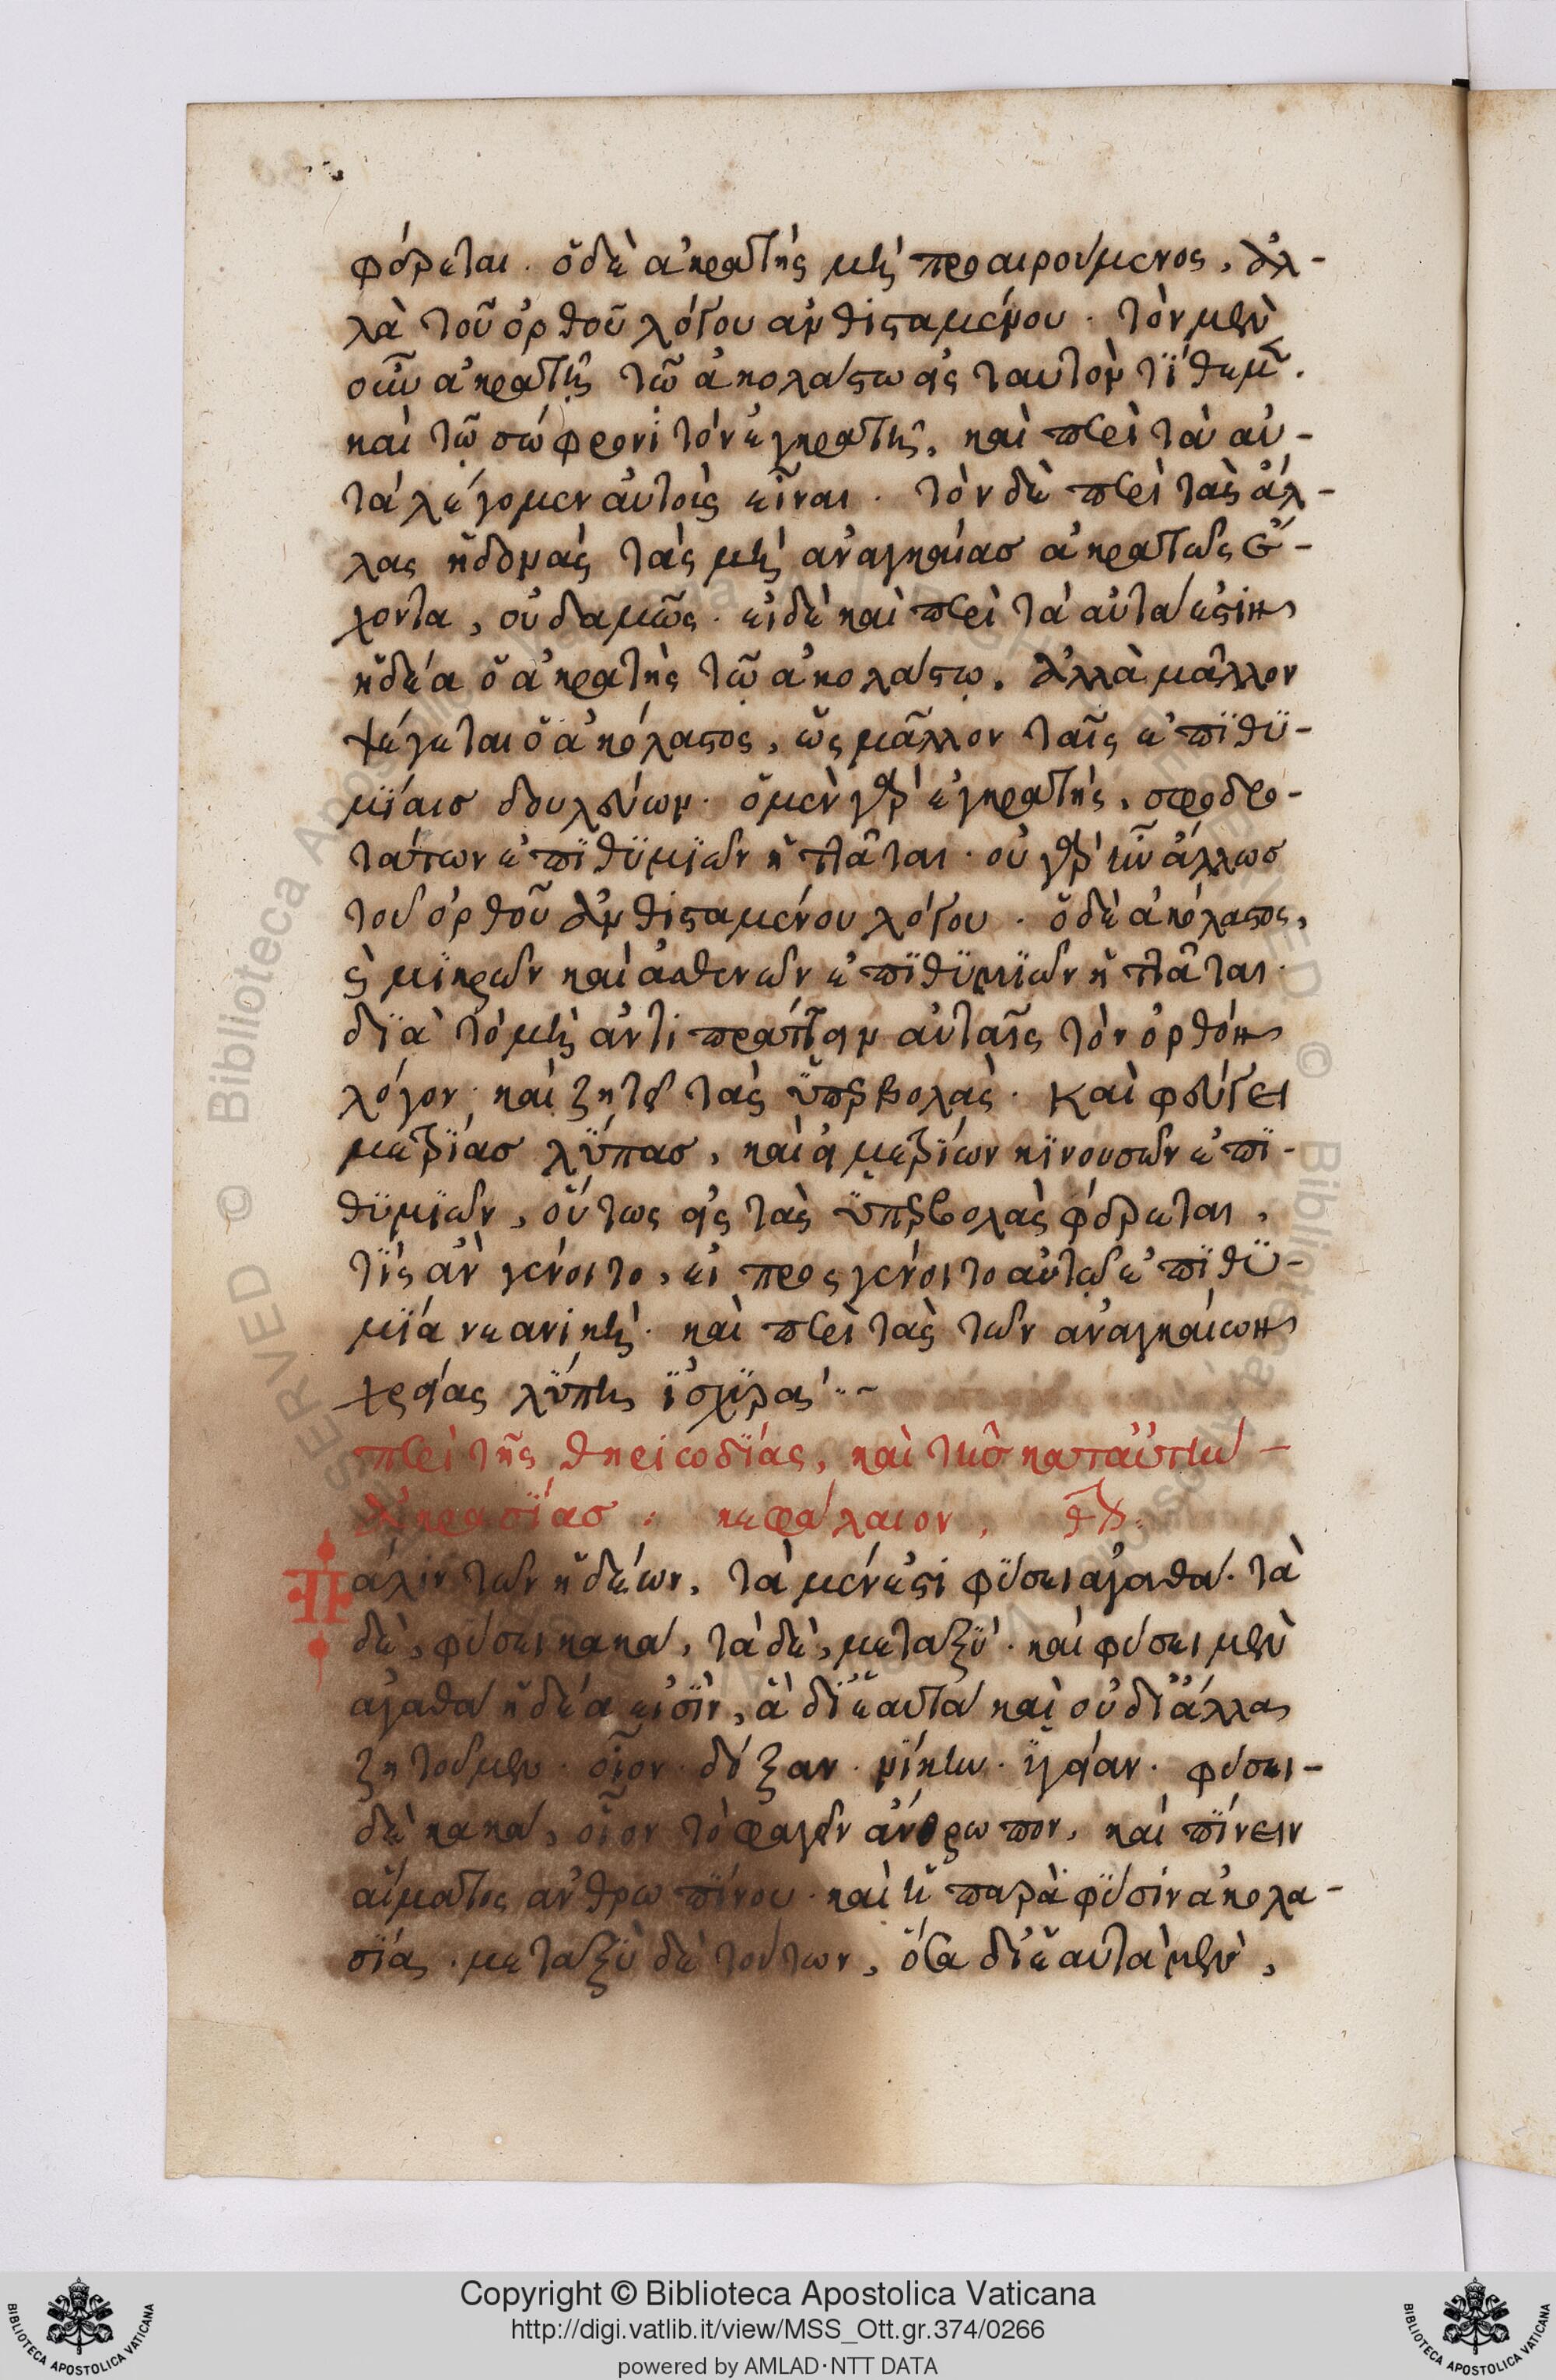 φέρεται. ὁ δὲ ἀκρατὴς μὴ προαιρούμενος, ἀλ-
λὰ τοῦ ὀρθοῦ λόγου ἀνθισταμένου. τὸν μὲν
οὖν ἀκρατῆ τῶ ἀκολάστω εἰς ταυτὸν τίθεμεν.
καὶ τῶ σώφρονι τὸν ἐγκρατῆ, καὶ περὶ τὰ αὐ-
τά λέγομεν αὐτοὶς εἶναι. τὸν δὲ περὶ τὰς ἀλ-
λας ἡδονὰς τὰς μὴ ἀναγκαίασ ἀκρατῶς ἔ-
χοντα, οὐδαμῶς. εἰ δὲ καὶ περὶ τὰ αὐτά ἐστιν
ἡδέα ὁ ἀκρατὴς τῶ ἀκολάστω. ἀλλὰ μᾶλλον
ψέγεται ὁ ἀκόλαστος, ὡς μᾶλλον ταῖς ἐπϊθϋ-
μΐαισ δουλεύων. ὁ μὲν γὰρ ἐγκρατὴς, σφοδρο-
τάτων ἐπϊθϋμϊῶν ἡττᾶται. οὐ γὰρ ἦν ἄλλωσ
τοῦ ὀρθοῦ ἀνθισταμένου λόγου. ὁ δὲ ἀκόλαστος,
καὶ μϊκρῶν καὶ ἀσθενῶν ἐπϊθϋμϊῶν ἡττᾶται.
δϊὰ τὸ μὴ ἀντιπράττειν αὐταῖς τὸν ὀρθὸν
λόγον. καὶ ζητεῖ τὰς ὑπερβολὰς. Καὶ φεύγει
μετρΐασ λΰπασ, καὶ εἰ μετρΐων κϊνουσῶν ἐπϊ-
θϋμϊῶν, οὕτως εἰς τὰς ὑπερβολὰς φέρεται,
τίς ἂν γένοιτο, εἰ προςγένοιτο αὐτῶ ἐπϊθϋ-
μΐα νεανικὴ. καὶ περὶ τὰς τῶν ἀναγκαίων
χρείας λΰπη ἰσχϋρά:~
περὶ τῆς θηριωδΐας, καὶ τῆσ κατ' αὐτὴν
ἀκρασΐασ: κεφάλαιον,
Πάλιν τῶν ἡδέων, τὰ μέν ἐστι φΰσει ἀγαθά. τὰ
δὲ, φύσει κακά, τὰ δὲ, μεταξΰ. καὶ φύσει μὲν
ἀγαθά ἡδέα εἰσΐν, ἃ δϊ' ἑαυτά καὶ οὐ δϊ' ἄλλα
ζητοῦμεν. οἷον. δόξαν. νίκην. ὑγείαν. φύσει-
δὲ κακά, οἷον τὸ φαγεῖν ἄνθρωπον, καὶ πΐνειν
αἵματος ἀνθρωπΐνου. καὶ ἡ παρὰ φΰσιν ἀκολα-
σΐα. μεταξὺ δὲ τούτων, ὅσα δϊ' ἑαυτὰ μὲν,
Copyright © Biblioteca Apostolica Vaticana
http://digi.vatlib.it/view/MSS_Ott.gr.374/0266
powered by AMLAD·NTT DATA
BIBLIOTECA APOSTOLICA VATICANA
BIBLIOTECA APOSTOLICA VATICANA